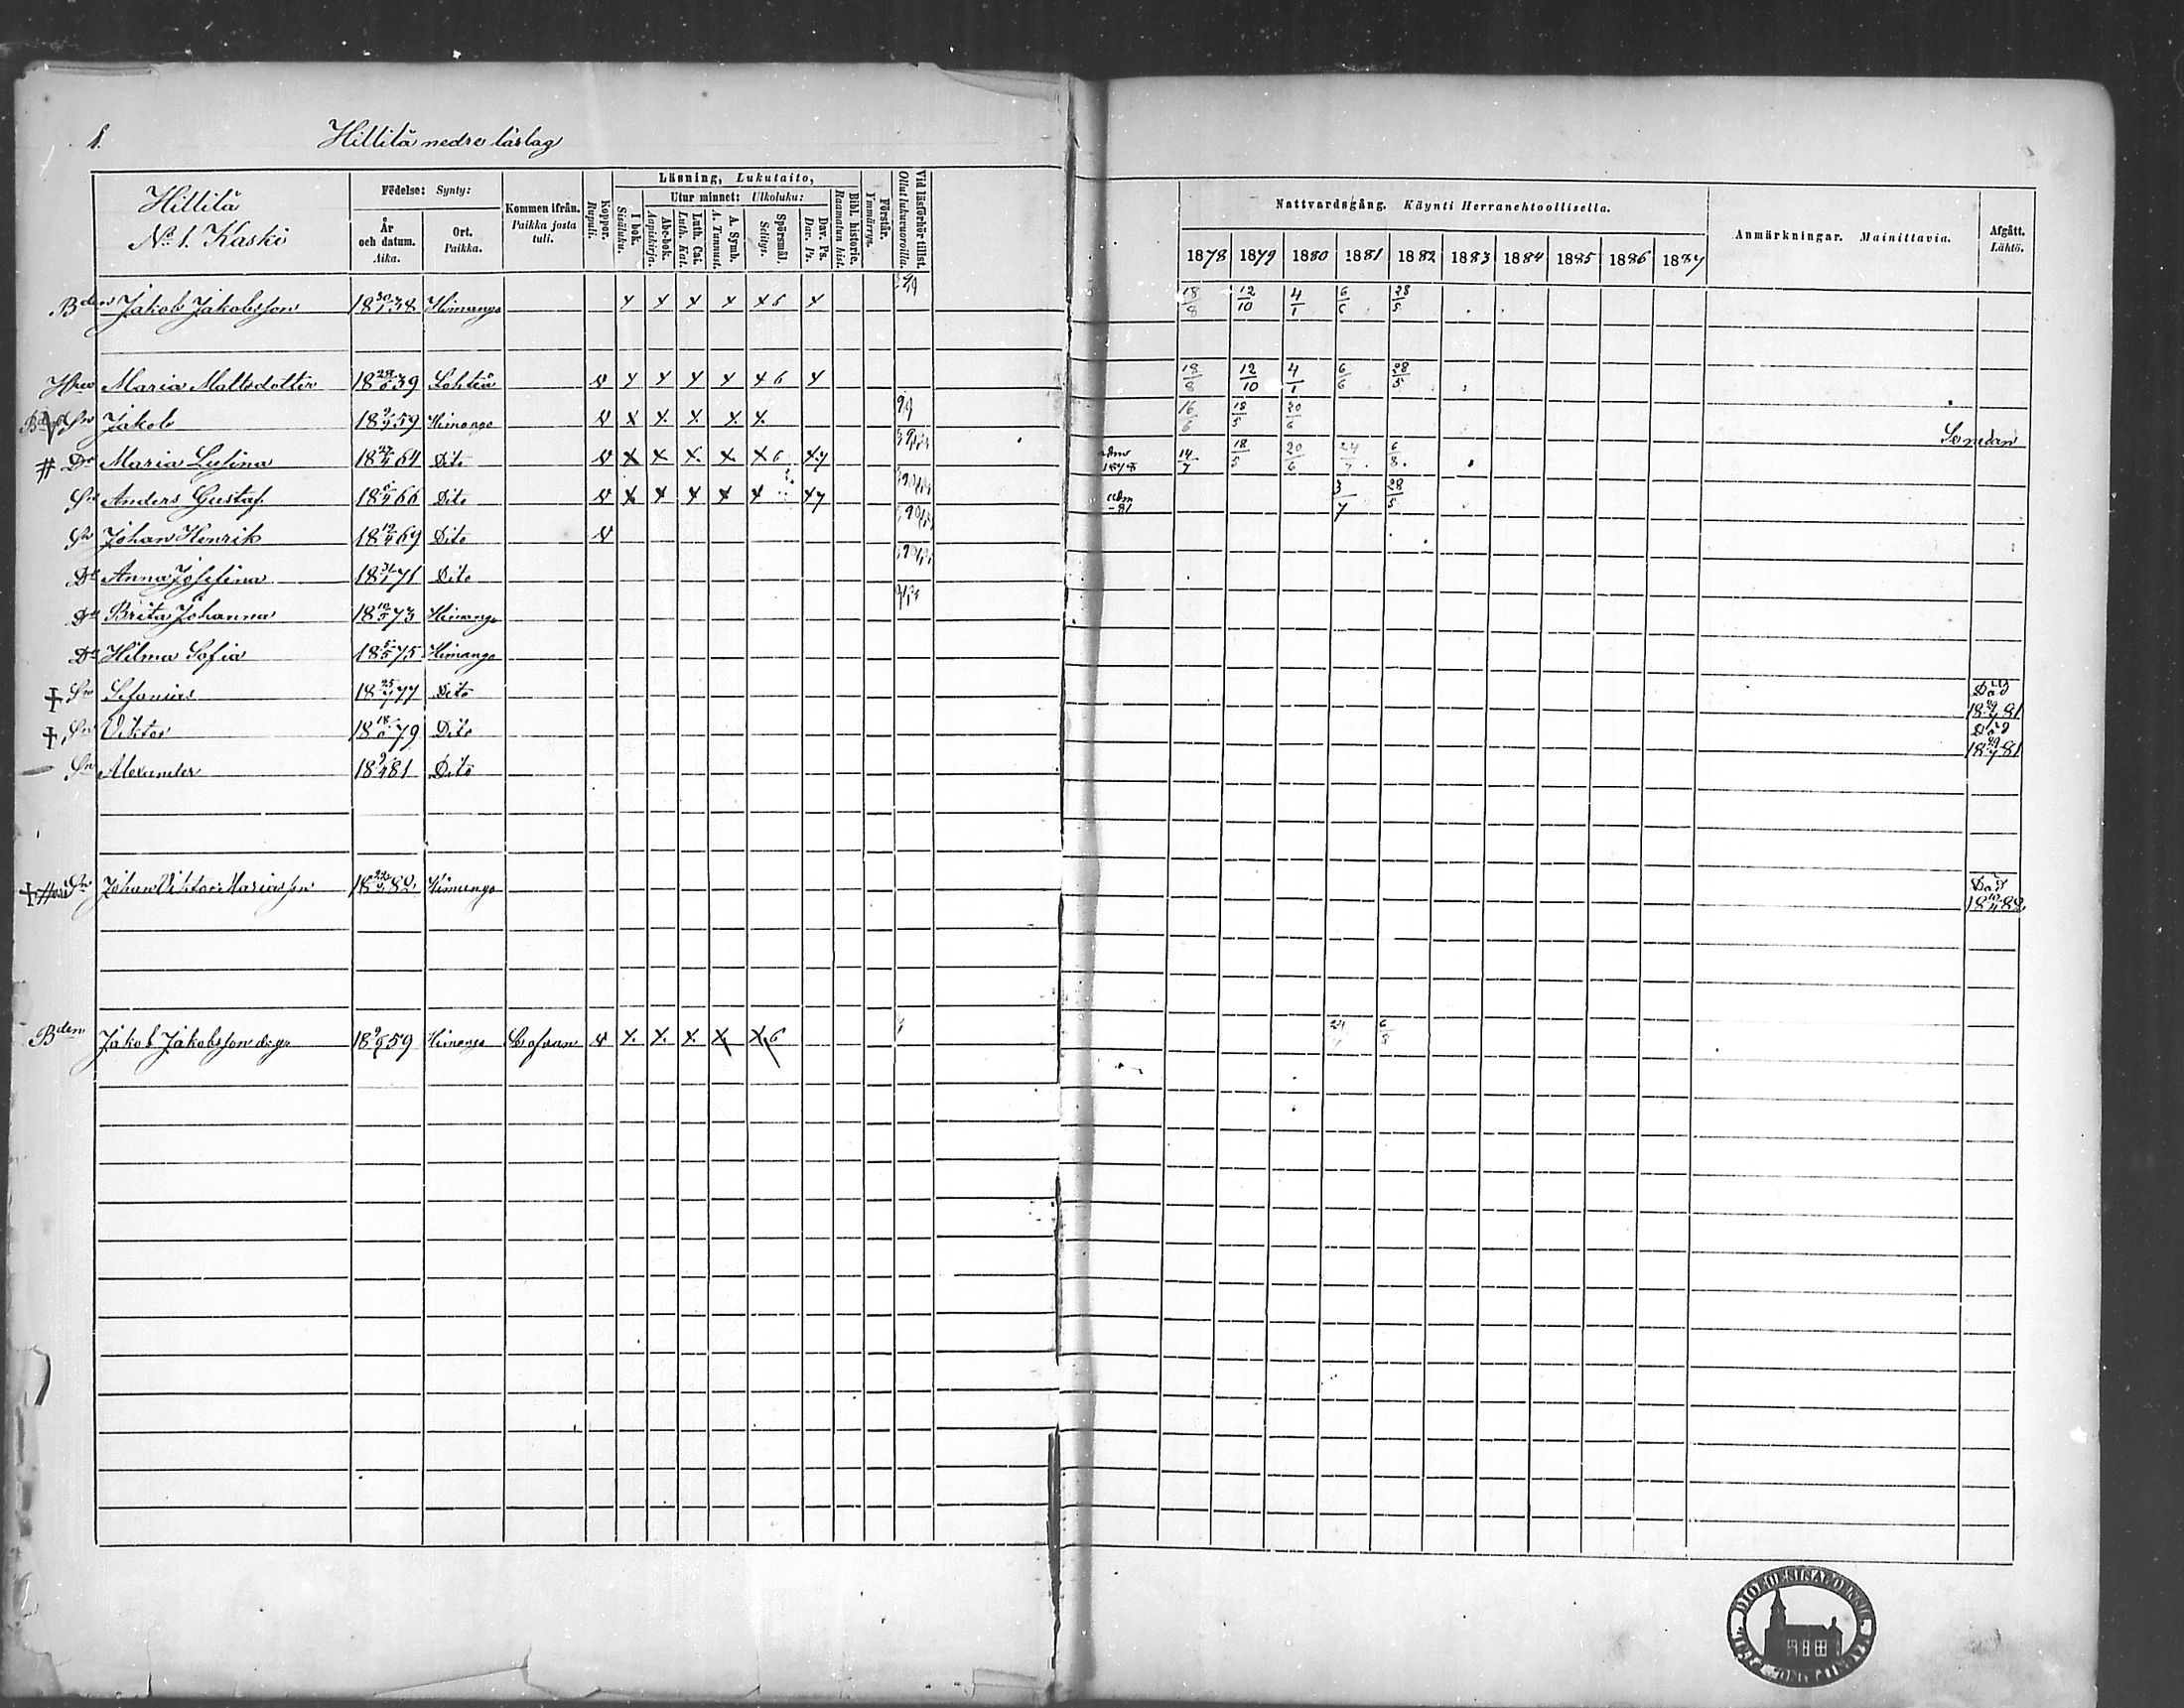 1. Hillilä nedre läslag
Hillilä
No 1. Kaski
Födelse: Synty:
År och datum. Aika.
Ort. Paikka.
Kommen ifrån. Paikka josta tuli.
Koppor. Rupuli.
Läsning, Lukutaito,
I bok. Sisäluku.
Utur minnet: Ulkoluku:
Abc-bok. Aapiskirja.
Luth. Cat. Luth. Kat.
A. Symb. A. Tunnust.
Spörsmål. Selitys.
Dav. Ps. Dav. Ps.
Bibl. historie. Raamatun hist.
Förstår. Ymmärrys.
Vid läsförhör tillst. Ollut lukuvuoroilla.
Nattvardsgång. Käynti Herranehtoollisella.
1878 1879 1880 1881 1882 1883 1884 1885 1886 1887
Anmärkningar. Mainittavia.
Afgått. Lähtö.
Bden Jakob Jakobsson 18 30/7 38 Himango x x x x x 6 x 18/8 12/10 4/1 6/6 28/5
Hu Maria Mattsdotter 18 28/6 39 Lohteå v x x x x x 6 x 18/8 12/10 4/1 6/6 28/5
Sn Jakob 18 9/9 59 Himango v x x x x x 16/6 18/5 20/6 Se nedan
# Dr Maria Lusina 18 64 Dito v x x x x x 6 adm 1878 14/7 18/5 20/6 24/7 6/8
Sn Anders Gustaf 18 66 Dito v x x x x x adm -81 3/7 28/5
Sn Johan Henrik 18 12/4 69 Dito v
Dr Anna Josefina 18 31/1 71 Dito
Dr Brita Johanna 18 10/5 73 Himango
Dr Hilma Sofia 18 5/5 75 Himango
+ Sn Sefanias 18 25/7 77 Dito Död 18 81
+ Sn Viktor 18 18/6 79 Dito Död 18 29/7 81
Sn Alexander 18 9/4 81 Dito
+ Sn Johan Viktor Mariasson 18 80 Himango Död 18 10/4 82
Bden Jakob Jakobsson d.y. 18 9/9 59 Himango Här ofvan v x x x x x 6 24/7 6/8